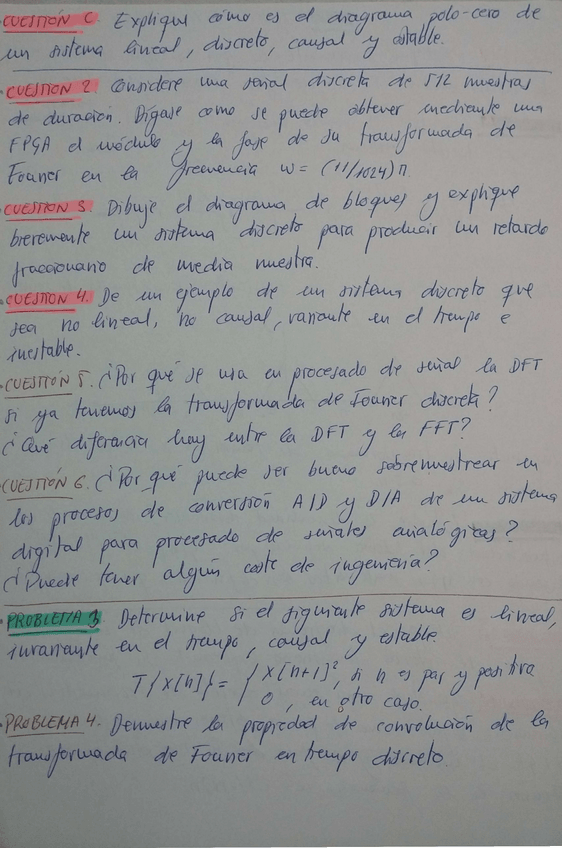 CUESTIÓN C. Explique cómo es el diagrama polo-cero de
un sistema lineal, discreto, causal y estable.
· CUESTION 2. Considere una señal discreta de 512 muestras
de duración. Dígase como se puede obtener mediante una
FPGA el módulo y la fase de su transformada de
Fourier en la frecuencia w = (11/1024)π.
CUESTIÓN 3. Dibuje el diagrama de bloques y explique
brevemente un sistema discreto para producir un retardo
fraccionario de media muestra.
· CUESTIÓN 4. De un ejemplo de un sistema discreto que
sea no lineal, no causal, variante en el tiempo e
inestable.
· CUESTIÓN 5. ¿Por qué se usa en procesado de señal la DFT
si ya tenemos la transformada de Fourier discreta?
¿Qué diferencia hay entre la DFT y la FFT?
CUESTIÓN 6. ¿Por qué puede ser bueno sobremuestrear en
los procesos de conversión A/D y D/A de un sistema
digital para procesado de señales analógicas?
¿Puede tener algún coste de ingeniería?
· PROBLEMA 3. Determine si el siguiente sistema es lineal,
invariante en el tiempo, causal y estable.
T{x[n]} = { x[n+1]², si n es par y positiva
0, en otro caso.
· PROBLEMA 4. Demuestre la propiedad de convolución de la
transformada de Fourier en tiempo discreto.